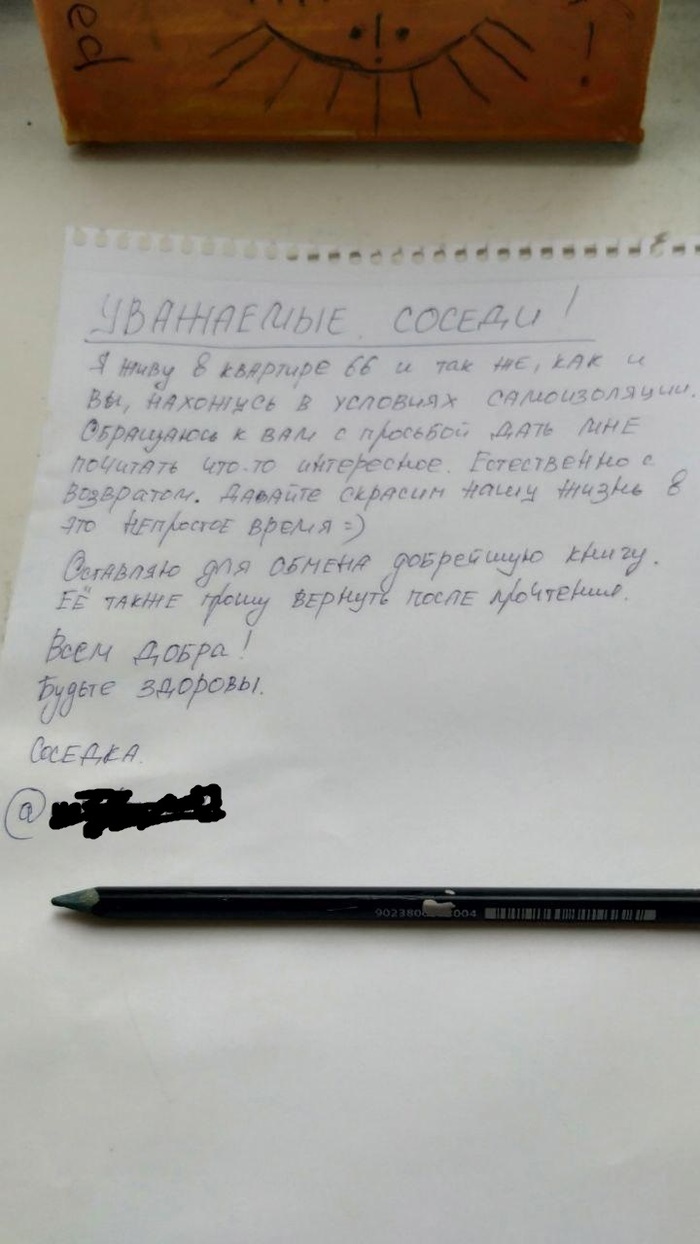 ed
УВАЖАЕМЫЕ СОСЕДИ!
Я живу в квартире 66 и так же, как и
вы, нахожусь в условиях самоизоляции.
Обращаюсь к вам с просьбой дать мне
почитать что-то интересное. Естественно с
возвратом. Давайте скрасим нашу жизнь в
это непростое время =)
Оставляю для обмена добрейшую книгу.
Её также прошу вернуть после прочтения.
Всем добра!
Будьте здоровы.
Соседка.
@